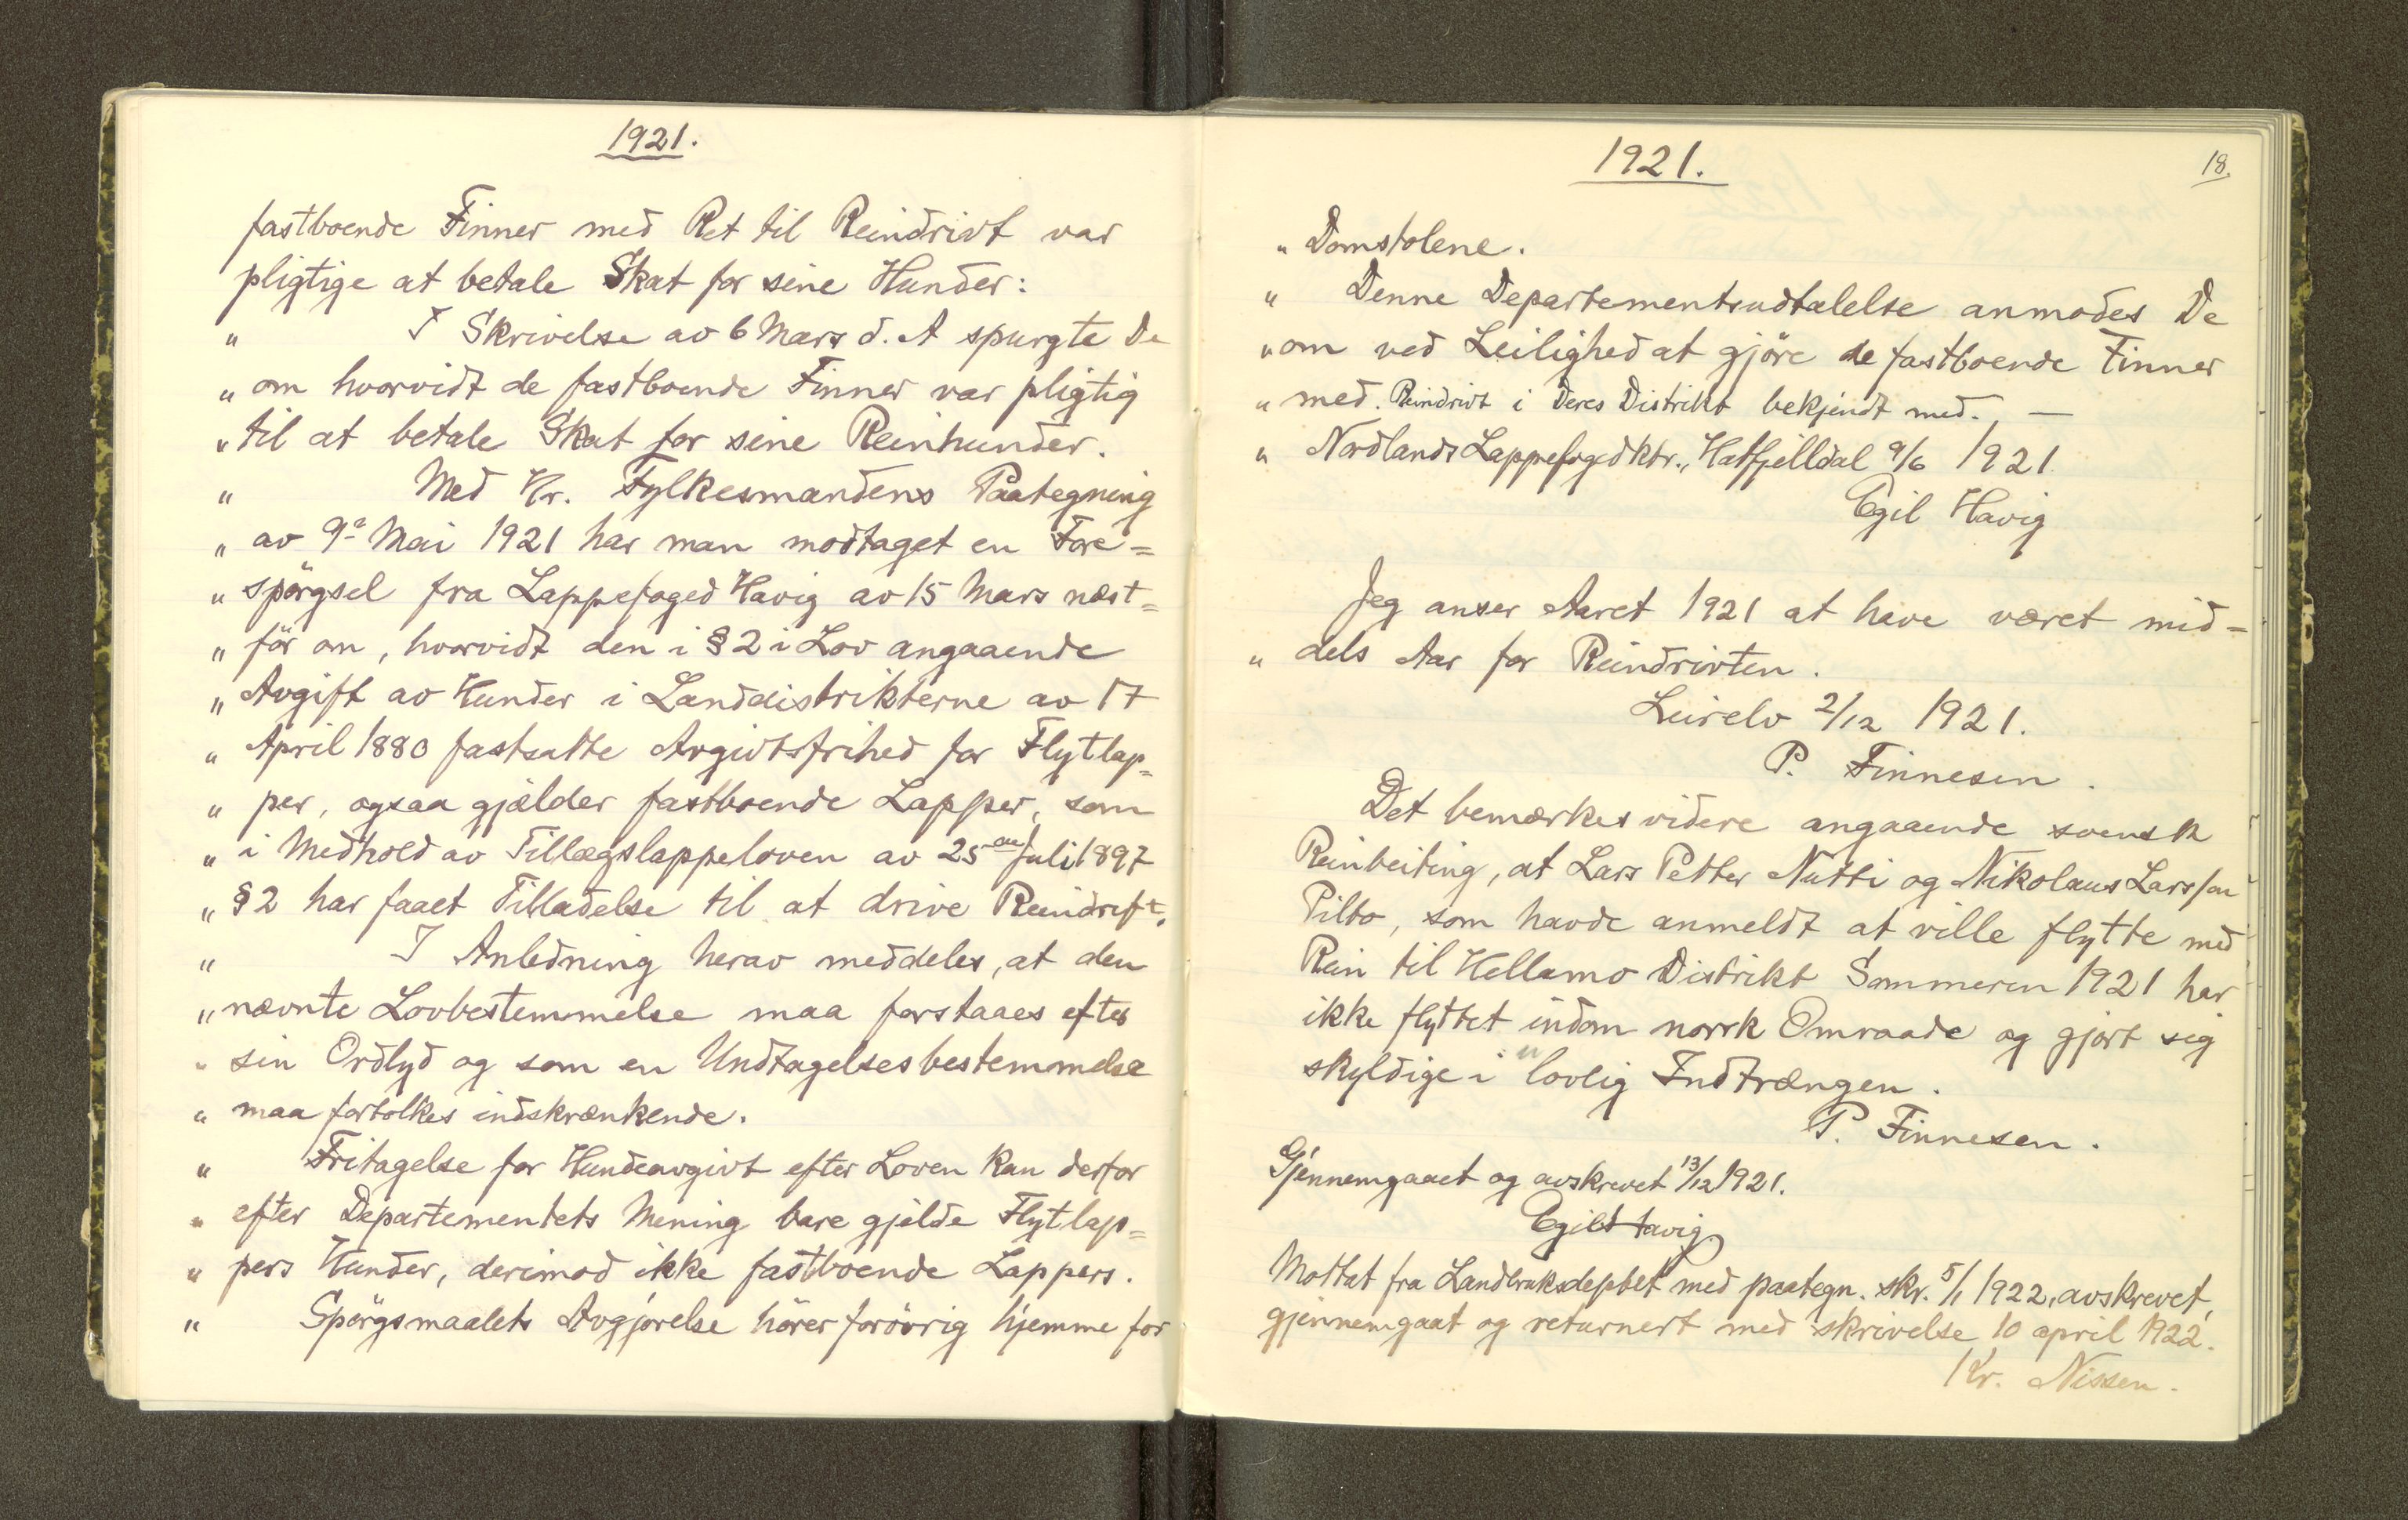 1921.
fastboende Finner med Ret til Reindrivt var
pligtige at betale Skat for sine Hunder:
" I Skrivelse av 6 Mars d. A spurgte De
" om hvorvidt de fastboende Finner var pligtig
" til at betale Skat for sine Reinhunder.
" Med Hr. Fylkesmandens Paategning
" av 9de Mai 1921 har man modtaget en Fore=
" spörgsel fra Lappefoged Havig av 15 Mars næst=
" för om, hvorvidt den i § 2 i Lov angaaende
" Avgift av Hunder i Landdistrikterne av 17
" April 1880 fastsatte Avgivtsfrihed for Flytlap=
" per, ogsaa gjælder fastboende Lapper, som
" i Medhold av Tillægslappeloven av 25 Juli 1897
" § 2 har faaet Tilladelse til at drive Reindrift.
" I Anledning herav meddeles, at den
" nævnte Lovbestemmelse maa forstaaes efter
" sin Ordlyd og som en Undtagelsesbestemmelse
" maa fortolkes indskrænkende.
" Fritagelse for Hundeavgivt efter Loven kan derfor
" efter Departementets Mening bare gjelde Flytlap=
" pers Hunder, derimod ikke fastboende Lappers.
" Spörgsmaalets Avgjörelse hörer forövrig hjemme for
1921.
18.
" Domstolene.
" Denne Departementsudtalelse anmodes De
" om ved Leilighed at gjöre de fastboende Finner
" med Reindrivt i Deres Distrikt bekjendt med. —
" Nordlands Lappefogedktr., Hatfjelldal 9/6 1921
Egil Havig
Jeg anser Aaret 1921 at have været mid=
" dels Aar for Reindrivten.
Leirelv 2/12 1921.
P. Finnesen.
Det bemærkes videre angaaende svensk
Reinbeiting, at Lars Petter Nutti og Nikolaus Larssen
Pilto, som havde anmeldt at ville flytte med
Rein til Hellamo Distrikt Sommeren 1921 har
ikke flyttet indom norsk Omraade og gjort sig
skyldige i ulovlig Indtrængen.
P. Finnesen.
Gjennemgaaet og avskrevet 13/12 1921.
Egil Havig.
Mottat fra Landbruksdeptet med paategn. skr. 5/1 1922, avskrevet,
gjennemgaat og returnert med skrivelse 10 april 1922.
Kr. Nissen.